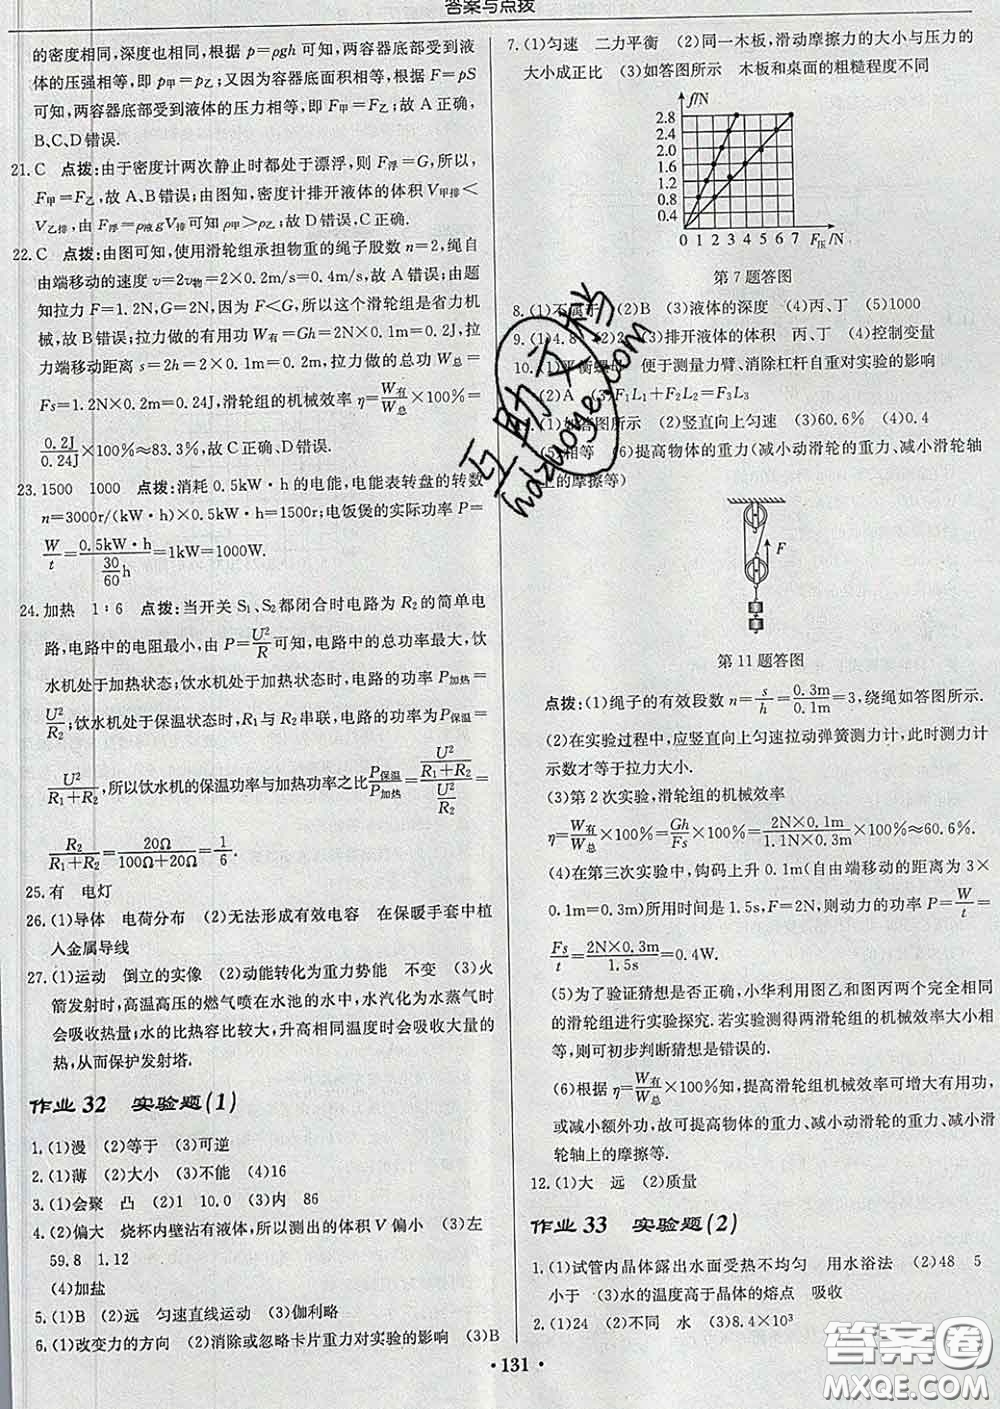 答案与点拨
的密度相同,深度也相同,根据 p=ρgh 可知,两容器底部受到液
体的压强相等,即 p甲=p乙;又因为容器底面积相等,根据 F=pS
可知,两容器底部受到液体的压力相等,即 F甲=F乙;故 A 正确,
B、C、D 错误.
21. C 点拨:由于密度计两次静止时都处于漂浮,则 F浮=G,所以,
F甲=F乙,故 A、B 错误;由图知,密度计排开液体的体积 V甲排<
V乙排,由 F浮=ρ液gV排可知 ρ甲>ρ乙;故 D 错误,C 正确.
22. C 点拨:由图可知,使用滑轮组承担物重的绳子股数 n=2,绳自
由端移动的速度 v=2v物=2×0.2m/s=0.4m/s,故 A 错误;由题
知拉力 F=1.2N,G=2N,因为 F<G,所以这个滑轮组是省力机
械,故 B 错误;拉力做的有用功 W有=Gh=2N×0.1m=0.2J,拉
力端移动距离 s=2h=2×0.1m=0.2m,拉力做的总功 W总=
Fs=1.2N×0.2m=0.24J,滑轮组的机械效率 η=W有/W总×100%=
0.2J/0.24J×100%≈83.3%,故 C 正确、D 错误.
23. 1500 1000 点拨:消耗 0.5kW·h 的电能,电能表转盘的转数
n=3000r/(kW·h)×0.5kW·h=1500r;电饭煲的实际功率 P=
W/t=0.5kW·h/(30/60 h)=1kW=1000W.
24. 加热 1:6 点拨:当开关 S₁、S₂都闭合时电路为 R₂的简单电
路,电路中的电阻最小,由 P=U²/R可知,电路中的总功率最大,饮
水机处于加热状态;饮水机处于加热状态时,电路的功率 P加热=
U²/R₂;饮水机处于保温状态时,R₁与 R₂串联,电路的功率为 P保温=
U²/(R₁+R₂),所以饮水机的保温功率与加热功率之比P保温/P加热=(U²/(R₁+R₂))/(U²/R₂)=
R₂/(R₁+R₂)=20Ω/(100Ω+20Ω)=1/6.
25. 有 电灯
26. (1)导体 电荷分布 (2)无法形成有效电容 在保暖手套中植
入金属导线
27. (1)运动 倒立的实像 (2)动能转化为重力势能 不变 (3)火
箭发射时,高温高压的燃气喷在水池的水中,水汽化为水蒸气时
会吸收热量;水的比热容比较大,升高相同温度时会吸收大量的
热,从而保护发射塔.
作业 32 实验题(1)
1. (1)漫 (2)等于 (3)可逆
2. (1)薄 (2)大小 (3)不能 (4)16
3. (1)会聚 凸 (2)1 10.0 (3)内 86
4. (2)偏大 烧杯内壁沾有液体,所以测出的体积 V 偏小 (3)左
59.8 1.12
(4)加盐
5. (1)B (2)远 匀速直线运动 (3)伽利略
6. (1)改变力的方向 (2)消除或忽略卡片重力对实验的影响 (3)B
7. (1)匀速 二力平衡 (2)同一木板,滑动摩擦力的大小与压力的
大小成正比 (3)如答图所示 木板和桌面的粗糙程度不同
f/N
2.8
2.4
2.0
1.6
1.2
0.8
0.4
0 1 2 3 4 5 6 7 F压/N
第 7 题答图
8. (1)不属于 (2)B (3)液体的深度 (4)丙、丁 (5)1000
9. (1)4.8 (2)2 (3)排开液体的体积 丙、丁 (4)控制变量
10. (1)平衡螺母 便于测量力臂、消除杠杆自重对实验的影响
(2)A (3)F₁L₁+F₂L₂=F₃L₃
(1)如答图所示 (2)竖直向上匀速 (3)60.6% (4)0.4
(5)相等 (6)提高物体的重力(减小动滑轮的重力、减小滑轮轴
上的摩擦等)
F
第 11 题答图
点拨:(1)绳子的有效段数 n=s/h=0.3m/0.1m=3,绕绳如答图所示.
(2)在实验过程中,应竖直向上匀速拉动弹簧测力计,此时测力计
示数才等于拉力大小.
(3)第 2 次实验,滑轮组的机械效率
η=W有/W总×100%=Gh/Fs×100%=2N×0.1m/1.1N×0.3m×100%≈60.6%.
(4)在第三次实验中,钩码上升 0.1m(自由端移动的距离为 3×
0.1m=0.3m)所用时间是 1.5s,F=2N,则动力的功率 P=W/t=
Fs/t=2N×0.3m/1.5s=0.4W.
(5)为了验证猜想是否正确,小华利用图乙和图丙两个完全相同
的滑轮组进行实验探究.若实验测得两滑轮组的机械效率大小相
等,则可初步判断猜想是错误的.
(6)根据 η=W有/W总×100%知,提高滑轮组机械效率可增大有用功,
或减小额外功,故可提高物体的重力、减小动滑轮的重力、减小滑
轮轴上的摩擦等.
12. (1)大 远 (2)质量
作业 33 实验题(2)
1. (1)试管内晶体露出水面受热不均匀 用水浴法 (2)48 5
小于 (3)水的温度高于晶体的熔点 吸收
2. (1)24 (2)不同 水 (3)8.4×10³
· 131 ·
互助文档
hdzuoye.com
答案圈
MXQE.COM